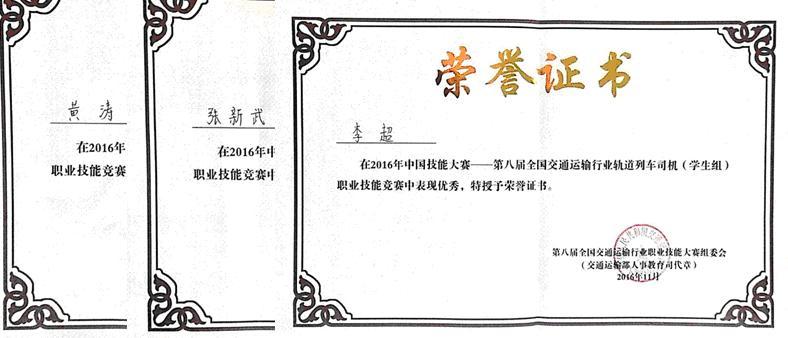 黄 涛
在2016年
职业技能竞赛
张新武
在2016年中
职业技能竞赛中
荣誉证书
李 超
在2016年中国技能大赛——第八届全国交通运输行业轨道列车司机（学生组）
职业技能竞赛中表现优秀，特授予荣誉证书。
第八届全国交通运输行业职业技能大赛组委会
（交通运输部人事教育司代章）
2016年11月